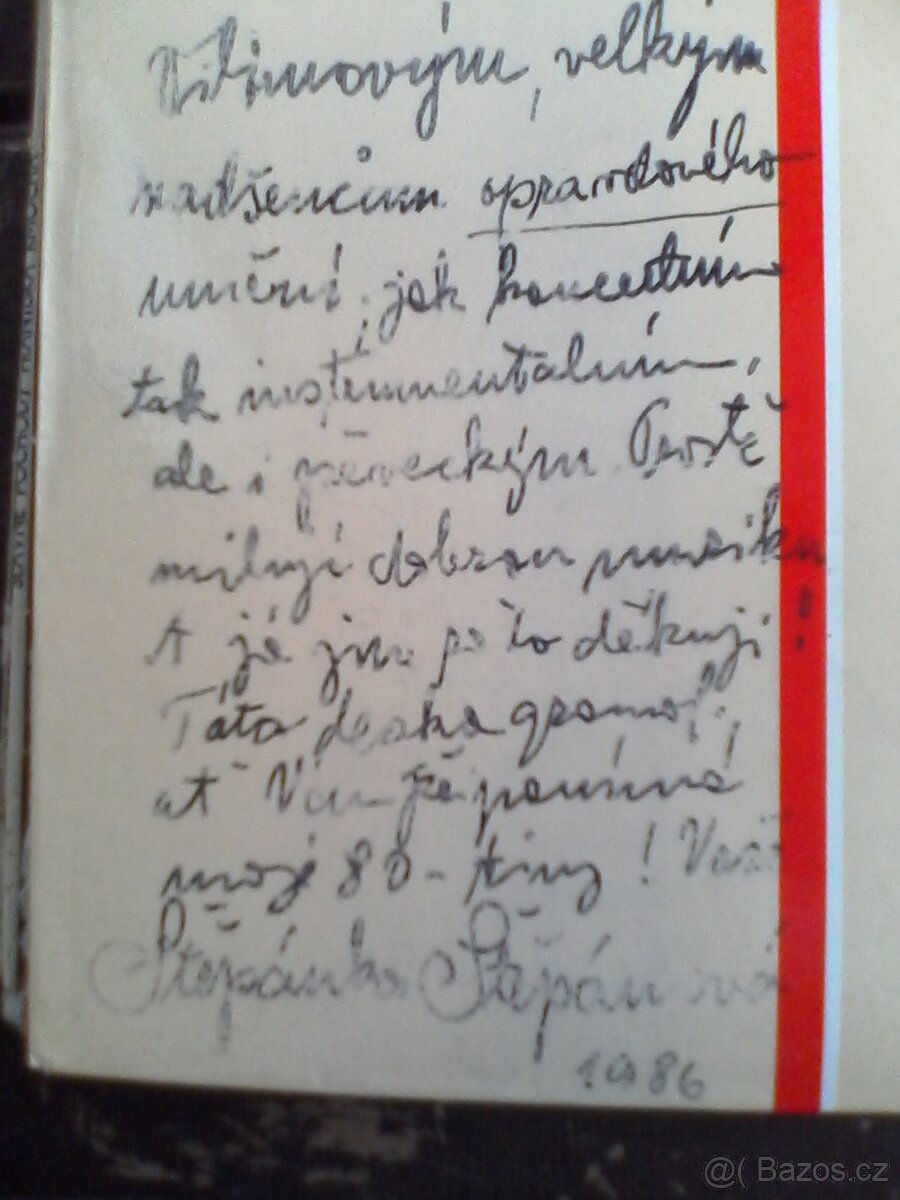 Vilímovým, velkým
nadšencům opravdového
umění, jak koncertním
tak instrumentálním,
ale i pěveckým. Prostě
milují dobrou muziku!
A já jim za to děkuji
Táta deska gramof.,
ať Vám připomíná
moje 80-tiny! Vaše
Štěpánka Štěpánová
1986
@( Bazos.cz